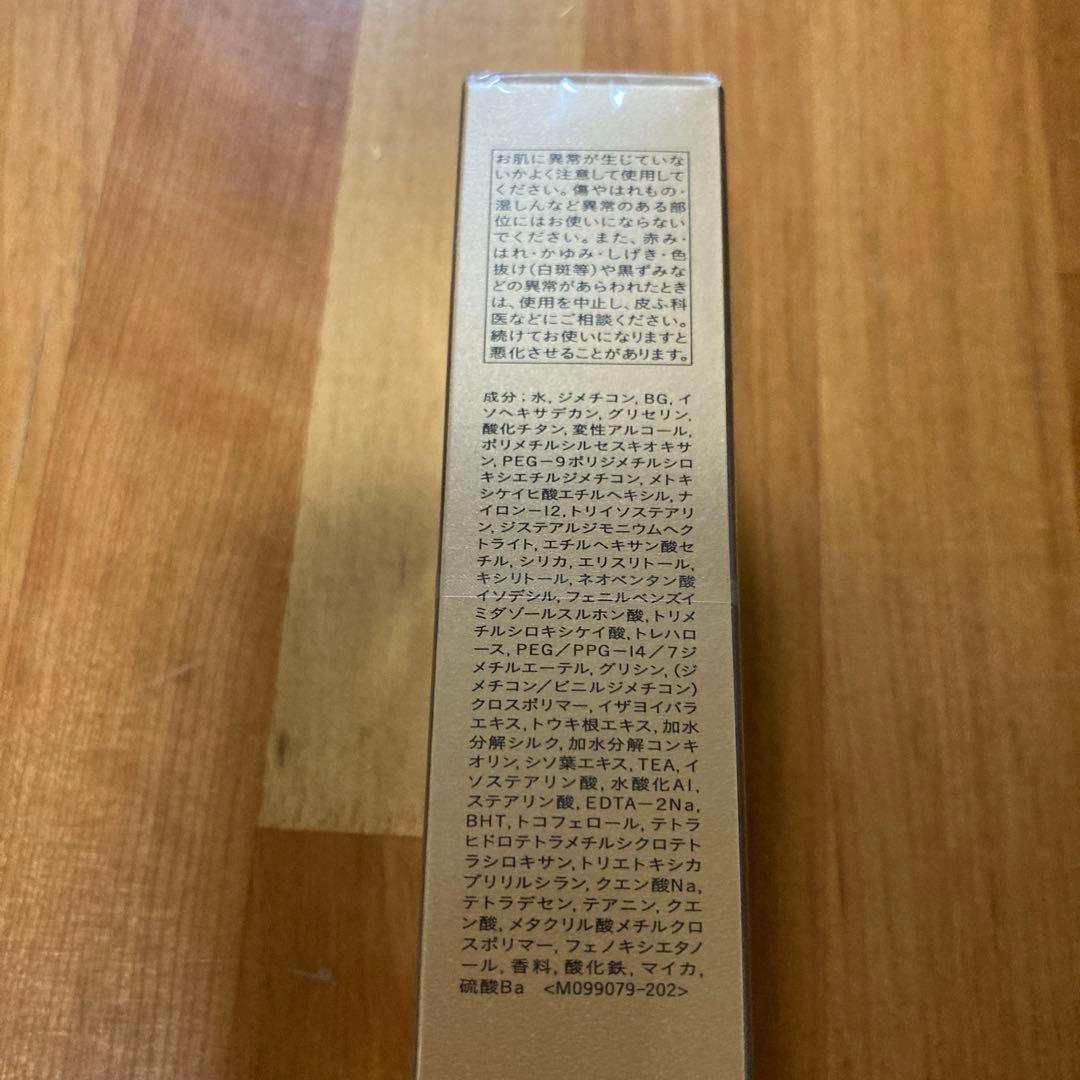 お肌に異常が生じていな
いかよく注意して使用して
ください。傷やはれもの・
湿しんなど異常のある部
位にはお使いにならない
でください。また、赤み・
はれ・かゆみ・しげき・色
抜け(白斑等)や黒ずみな
どの異常があらわれたとき
は、使用を中止し、皮ふ科
医などにご相談ください。
続けてお使いになりますと
悪化させることがあります。
成分;水, ジメチコン, BG, イ
ソヘキサデカン, グリセリン,
酸化チタン, 変性アルコール,
ポリメチルシルセスキオキサ
ン, PEG-9ポリジメチルシロ
キシエチルジメチコン, メトキ
シケイヒ酸エチルヘキシル, ナ
イロン-12, トリイソステアリ
ン, ジステアルジモニウムヘク
トライト, エチルヘキサン酸セ
チル, シリカ, エリスリトール,
キシリトール, ネオペンタン酸
イソデシル, フェニルベンズイ
ミダゾールスルホン酸, トリメ
チルシロキシケイ酸, トレハロ
ース, PEG/PPG-14/7ジ
メチルエーテル, グリシン, (ジ
メチコン/ビニルジメチコン)
クロスポリマー, イザヨイバラ
エキス, トウキ根エキス, 加水
分解シルク, 加水分解コンキ
オリン, シソ葉エキス, TEA, イ
ソステアリン酸, 水酸化Al,
ステアリン酸, EDTA-2Na,
BHT, トコフェロール, テトラ
ヒドロテトラメチルシクロテト
ラシロキサン, トリエトキシカ
プリリルシラン, クエン酸Na,
テトラデセン, テアニン, クエ
ン酸, メタクリル酸メチルクロ
スポリマー, フェノキシエタノ
ール, 香料, 酸化鉄, マイカ,
硫酸Ba <M099079-202>